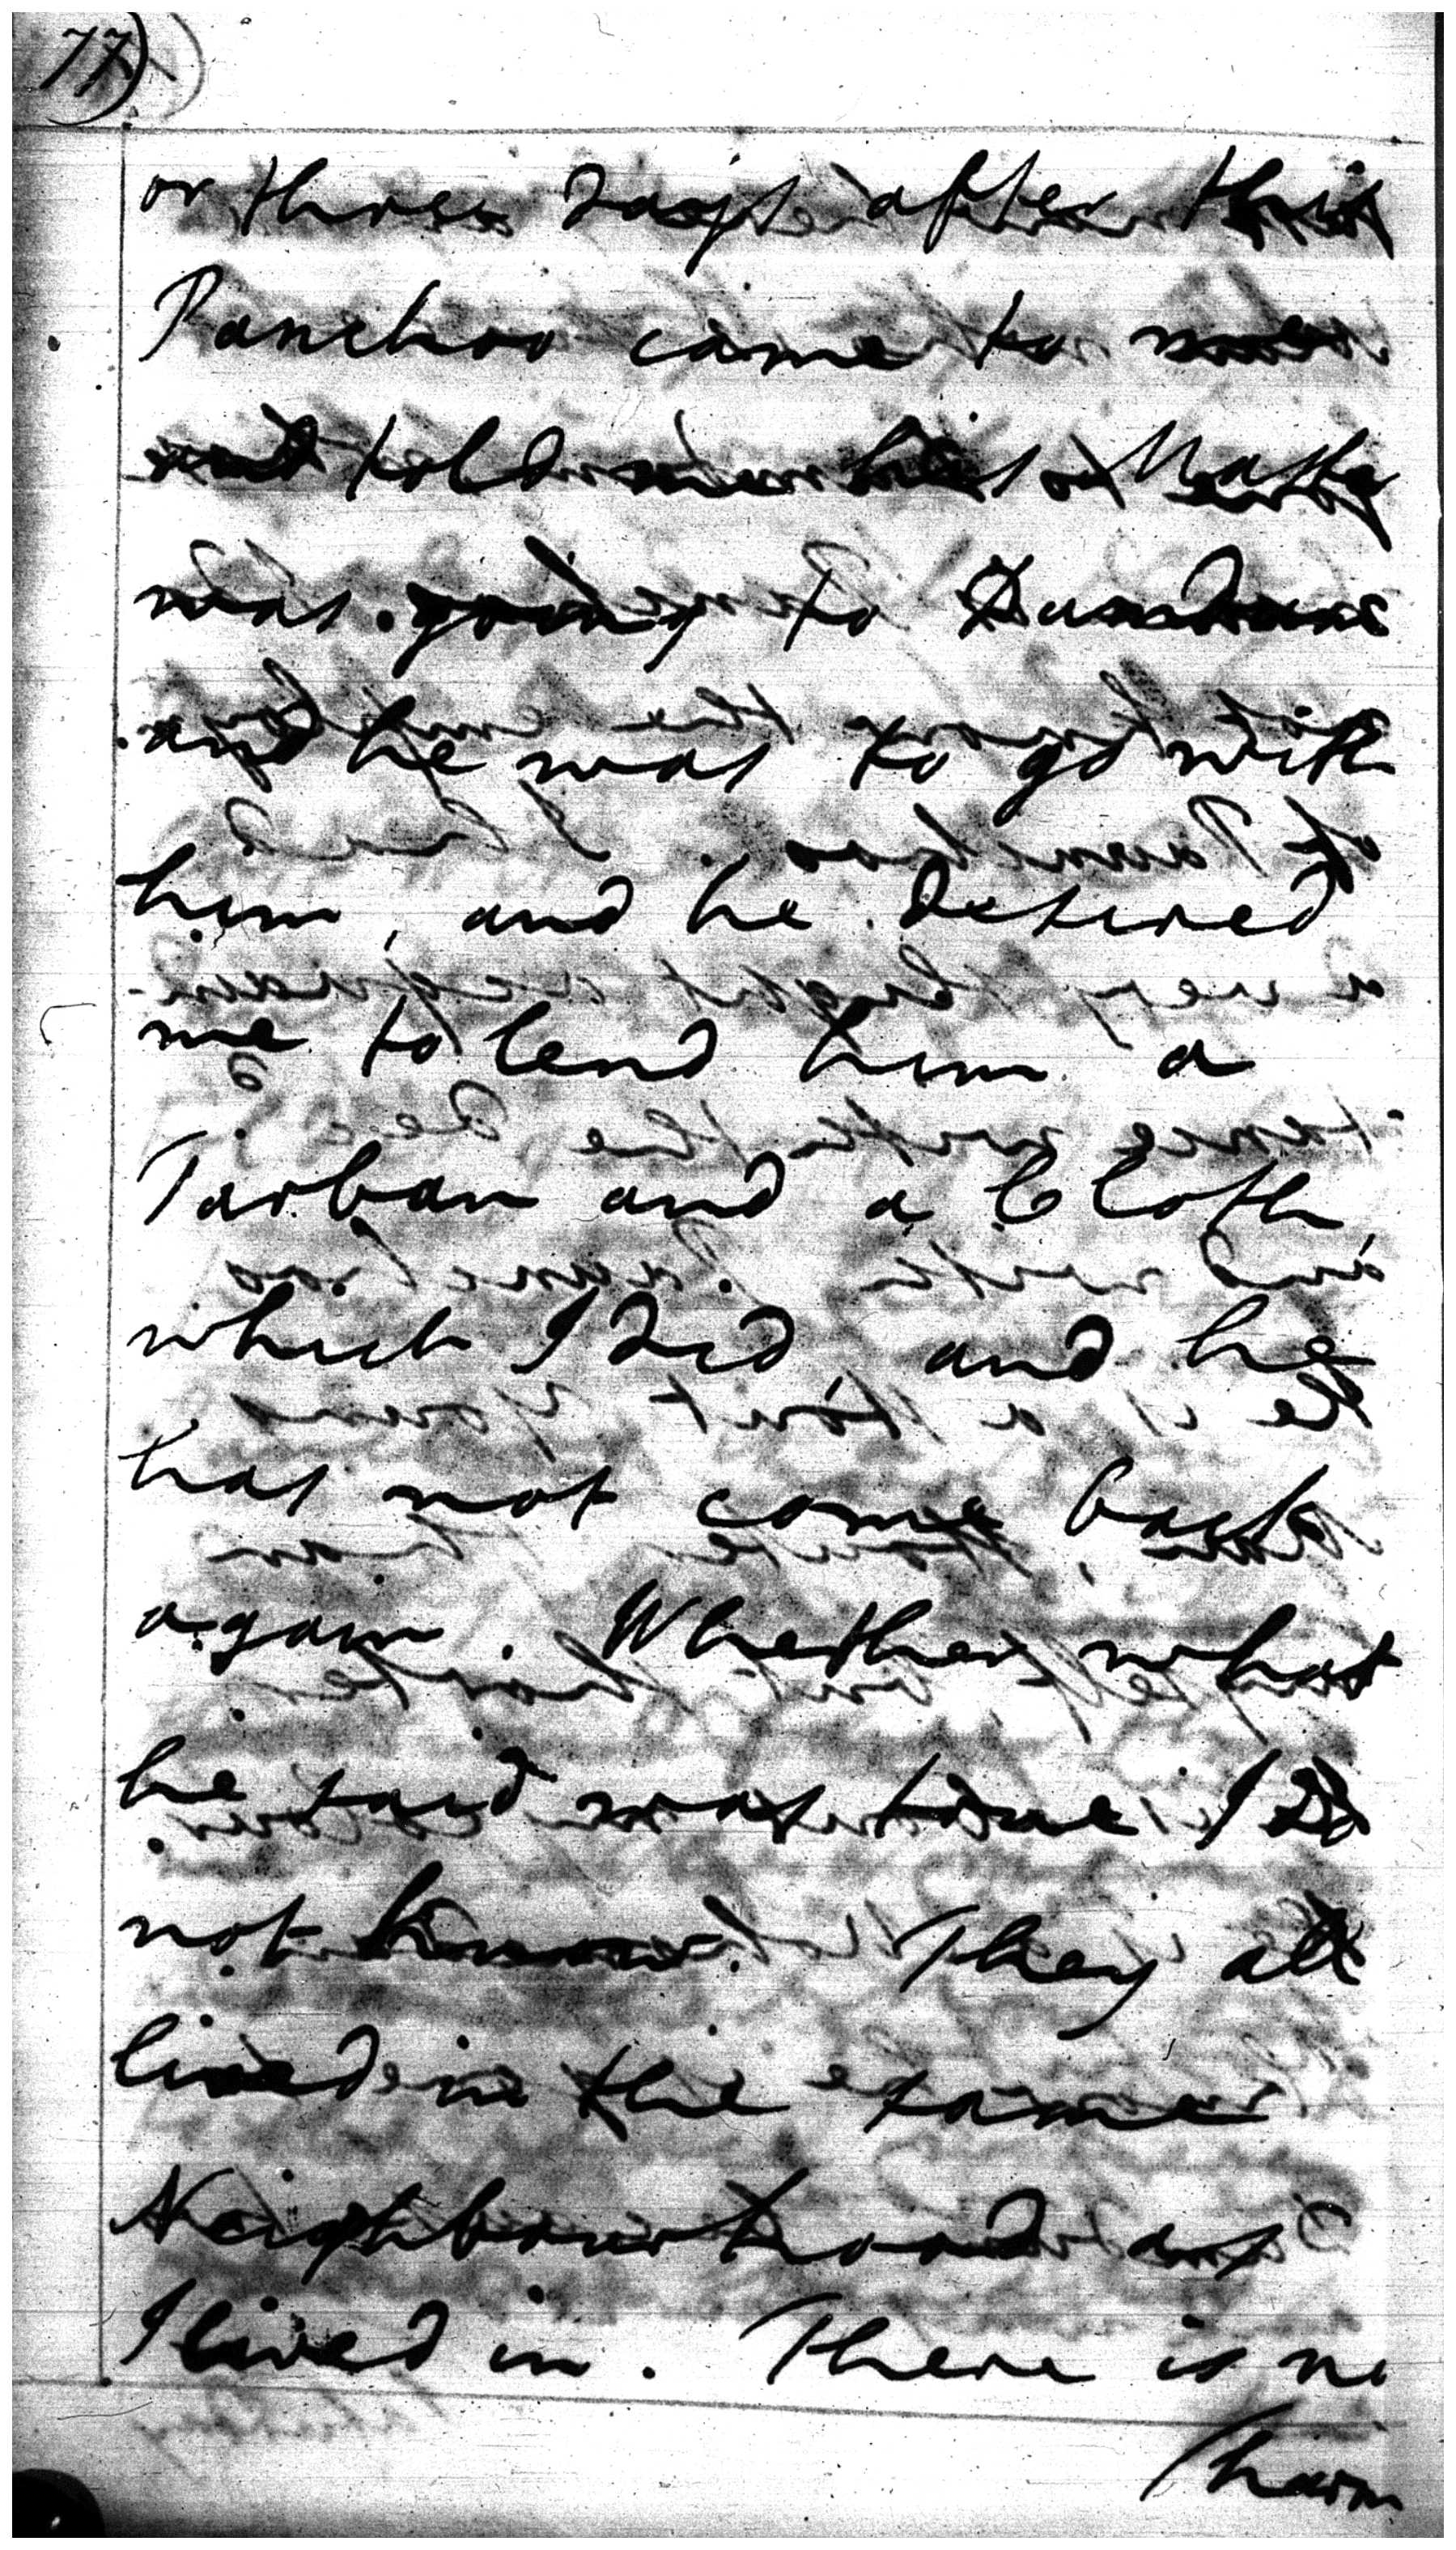 77)
or three days after this
Panchoo came to me
and told me his Master
was going to Burdwan
and he was to go with
him, and he desired
me to lend him a
Turban and a Cloth,
which I did, and he
has not come back
again. Whether what
he said was true I do
not know. They all
lived in the same
Neighbourhood as
I lived in. There is no